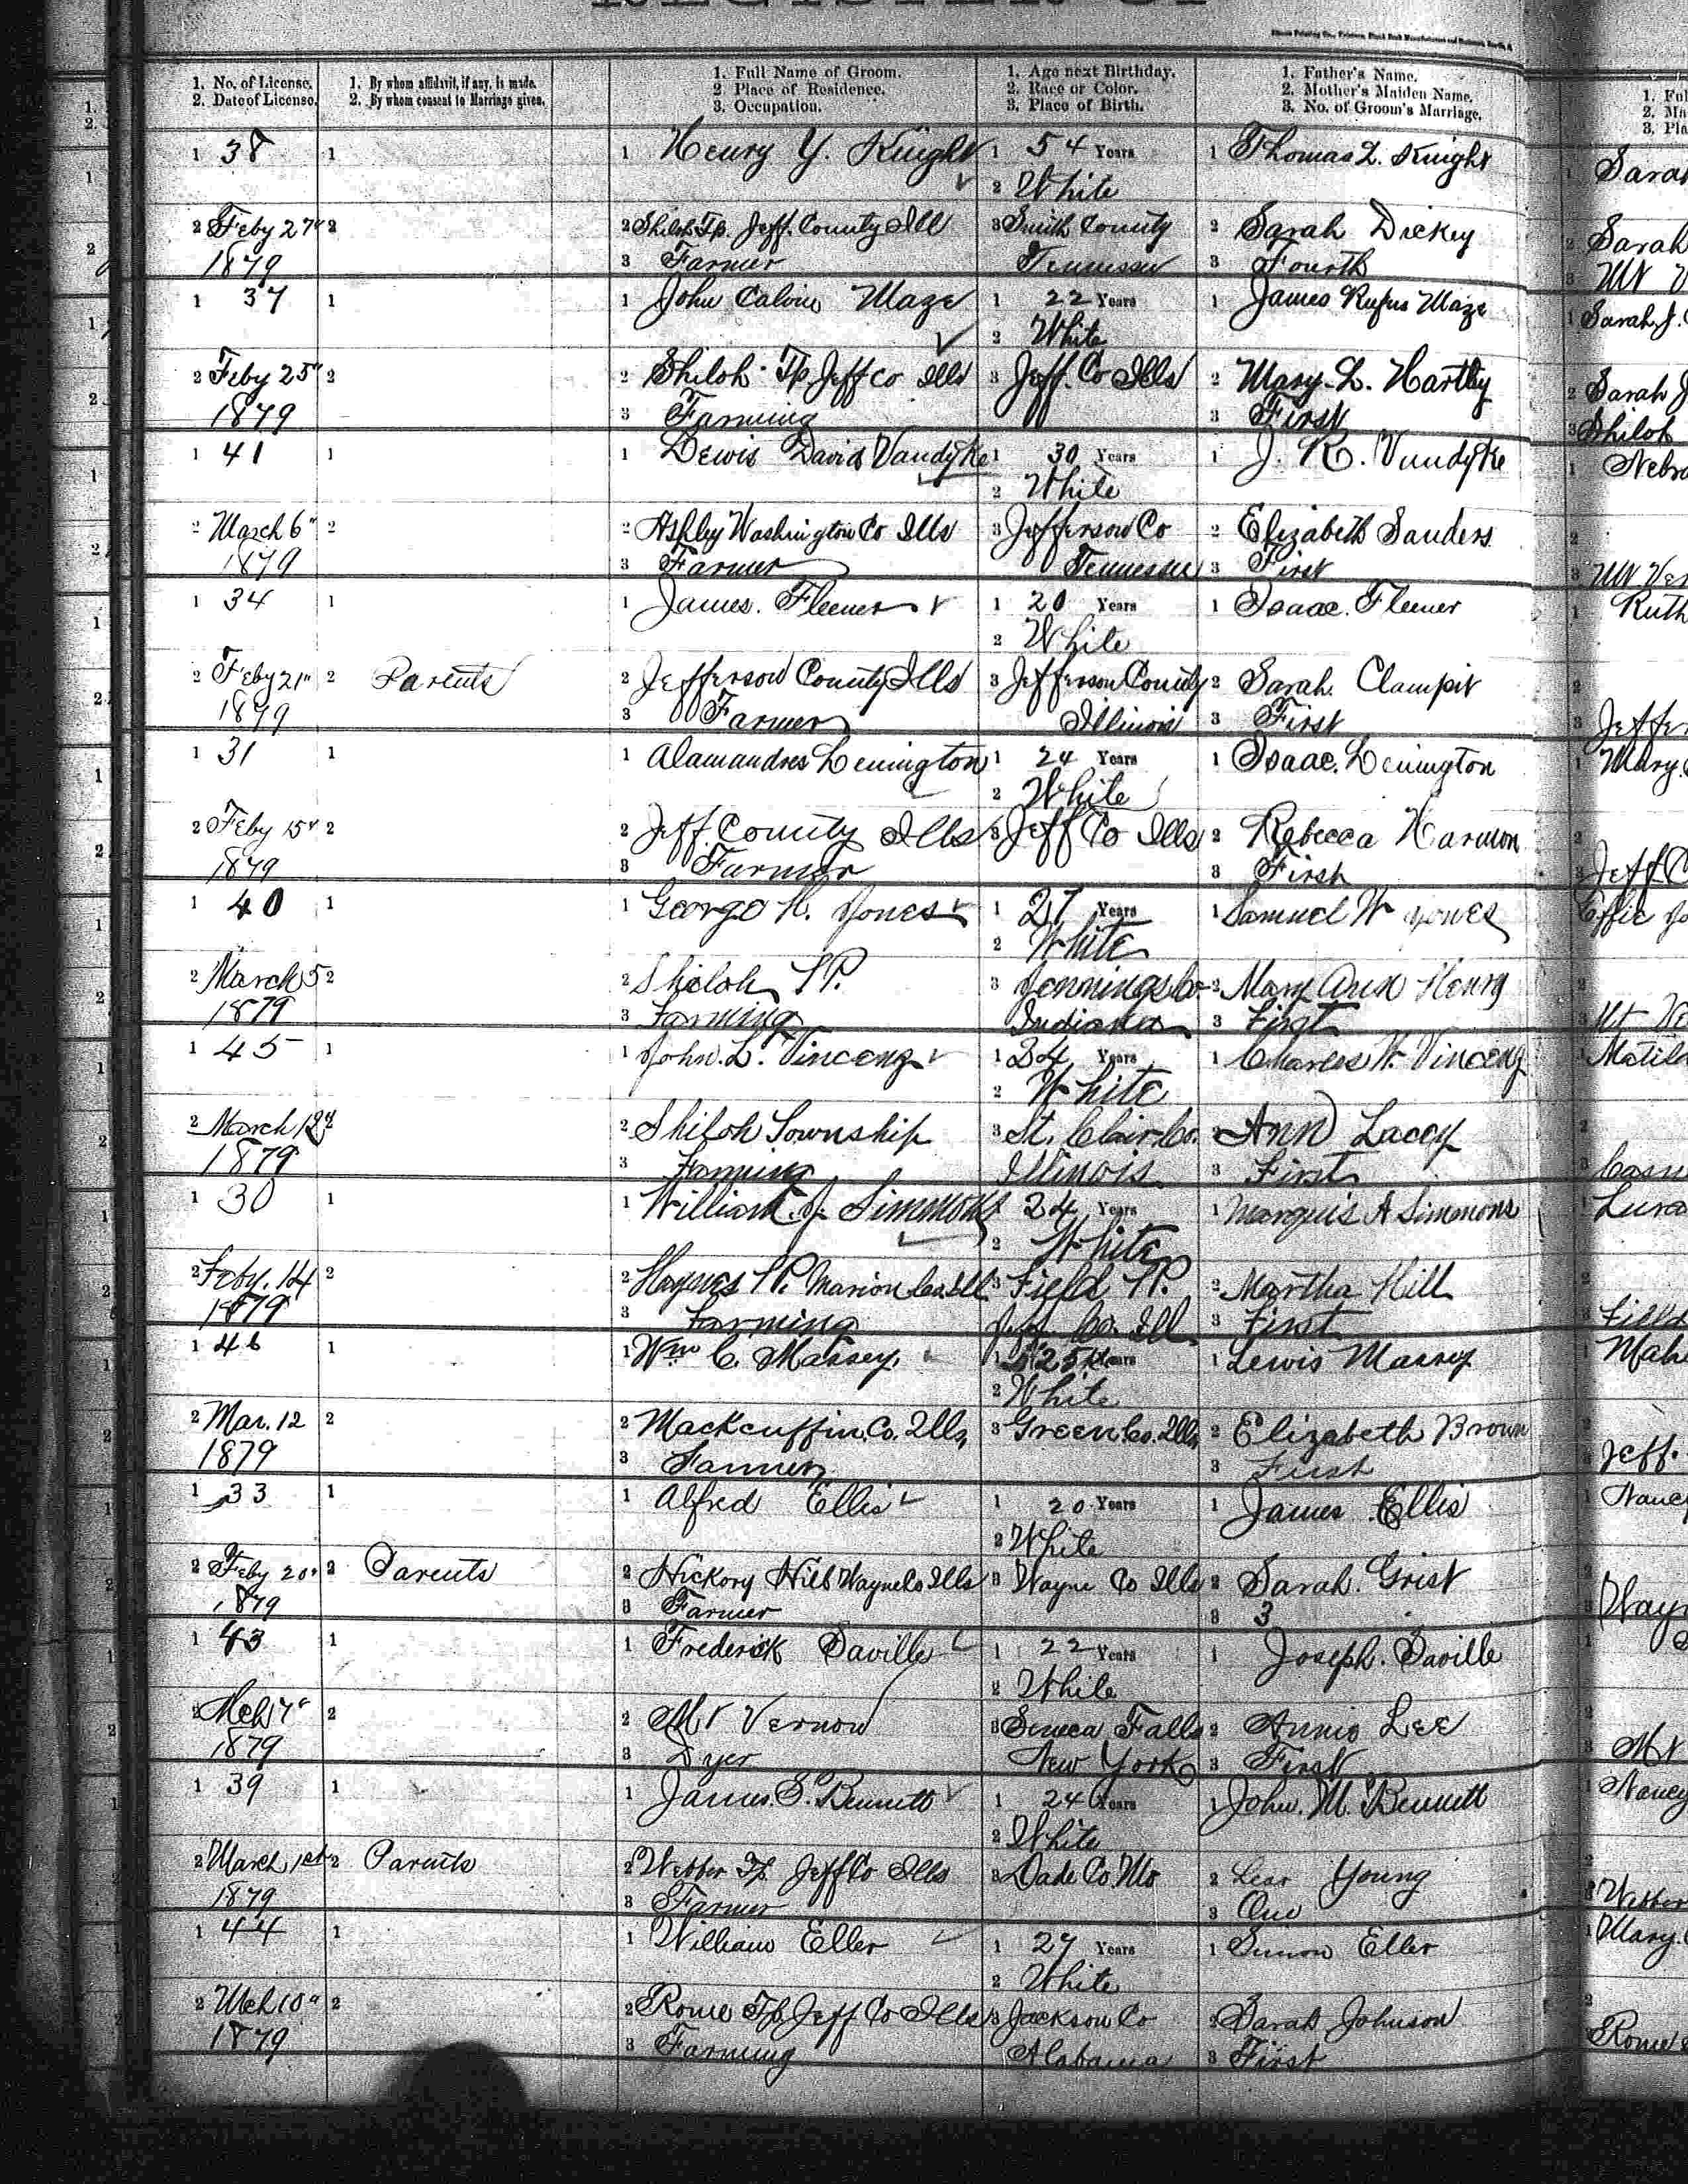 REGISTER OF
1. No. of License.
2. Date of License.
1. By whom affidavit, if any, is made.
2. By whom consent to Marriage given.
1. Full Name of Groom.
2 Place of Residence.
3. Occupation.
1. Age next Birthday.
2. Race or Color.
3. Place of Birth.
1. Father's Name.
2. Mother's Maiden Name.
3. No. of Groom's Marriage.
1 38 1 1 Henry Y. Knight 1 54 Years 1 Thomas L. Knight
2 White
2 Feby 27" 2 2 Shiloh Tp. Jeff. County Ill 3 Smith County 2 Sarah Dickey
1879 3 Farmer Tennessee 3 Fourth
1 37 1 1 John Calvin Maze 1 22 Years 1 James Rufus Maze
2 White
2 Feby 25" 2 2 Shiloh Tp Jeff Co Ills 3 Jeff. Co Ills 2 Mary L. Hartley
1879 3 Farming 3 First
1 41 1 1 Lewis David Vandyke 1 30 Years 1 J. R. Vandyke
2 White
2 March 6" 2 2 Ashley Washington Co Ills 3 Jefferson Co 2 Elizabeth Sanders
1879 3 Farmer Tennessee 3 First
1 34 1 1 James. Fleener 1 20 Years 1 Isaac. Fleener
2 White
2 Feby 21" 2 Parents 2 Jefferson County Ills 3 Jefferson County 2 Sarah Clampit
1879 3 Farmer Illinois 3 First
1 31 1 1 Alamandres Lenington 1 24 Years 1 Isaac. Lenington
2 White
2 Feby 15" 2 2 Jeff. County Ills 3 Jeff Co Ills 2 Rebecca Harmon
1879 3 Farmer 3 First
1 40 1 1 George H. Jones 1 27 Years 1 Samuel W Jones
2 White
2 March 5 2 2 Shiloh TP. 3 Jennings Co. 2 Mary Ann Henry
1879 3 Farming Indiana 3 First
1 45 1 1 John. L. Vincenz 1 24 Years 1 Charles W. Vincenz
2 White
2 March 12" 2 Shiloh Township 3 St. Clair Co. 2 Ann Lacey
1879 3 Farming Illinois 3 First
1 30 1 1 William J. Simmons 24 Years 1 Marquis A Simmons
2 White
2 Feby. 14 2 2 Haynes TP. Marion Co. Ill. 3 Field TP. 2 Martha Hill
1879 3 Farming Jeff. Co. Ill 3 First
1 46 1 1 Wm C. Massey. 1 25 Years 1 Lewis Massey
2 White
2 Mar. 12 2 2 Mackcuffin. Co. Ills, 3 Green Co. Ills, 2 Elizabeth Brown
1879 3 Farmer 3 First
1 33 1 1 Alfred Ellis 1 20 Years 1 James Ellis
2 White
2 Feby 20" 2 Parents 2 Hickory Hill Wayne Co Ills 3 Wayne Co Ills 2 Sarah. Grist
1879 3 Farmer 3 3
1 43 1 1 Frederick Saville 1 22 Years 1 Joseph. Saville
2 White
2 Mch 7" 2 2 Mt Vernon 3 Seneca Falls 2 Annie Lee
1879 3 Dyer New York 3 First
1 39 1 1 James. S. Bennett 1 24 Years 1 John. M. Bennett
2 White
2 March 1st 2 Parents 2 Webber Tp. Jeff Co Ills 3 Dade Co. Mo 2 Lear Young
1879 3 Farmer 3 One
1 44 1 1 William Eller 1 27 Years 1 Simon Eller
2 White
2 Mch 10" 2 2 Rome Tp. Jeff Co Ills 3 Jackson Co 2 Sarah Johnson
1879 3 Farming Alabama 3 First